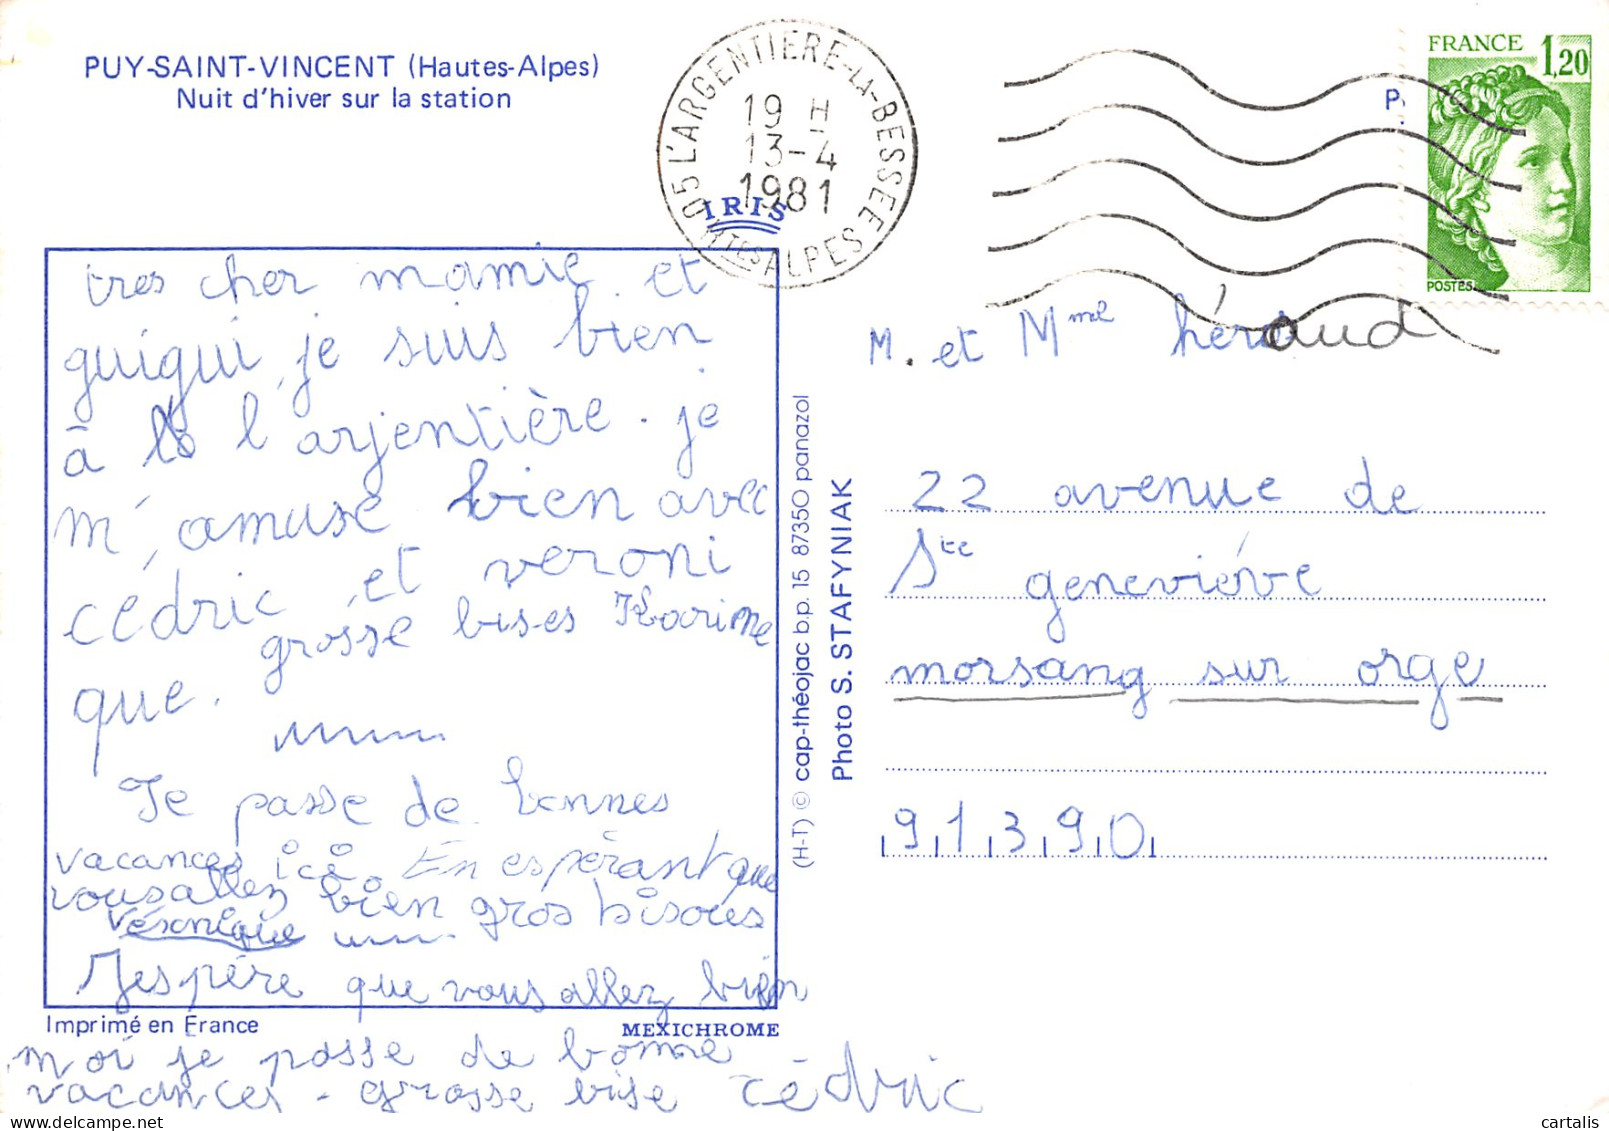 PUY-SAINT-VINCENT (Hautes-Alpes)
Nuit d'hiver sur la station
05 L'ARGENTIERE-LA-BESSEE
19 H
13-4
1981
HTES ALPES
IRIS
P.
FRANCE 1,20
POSTES
tres cher mamie et
guigui, je suis bien
à l'arjentière. je
m'amuse bien avec
cédric et veroni
grosse bises Karine
que.
Je passe de bonnes
vacances ici. En espérant que
vous allez bien gros bisous
Véronique
J'espére que vous allez bien
Imprimé en France
MEXICHROME
moi je passe de bonne
vacances - grosse bise cédric
(H-T) © cap-théojac b.p. 15 87350 panazol
Photo S. STAFYNIAK
M. et Mme héraud
22 avenue de
Ste geneviève
morsang sur orge
91390
cartalis